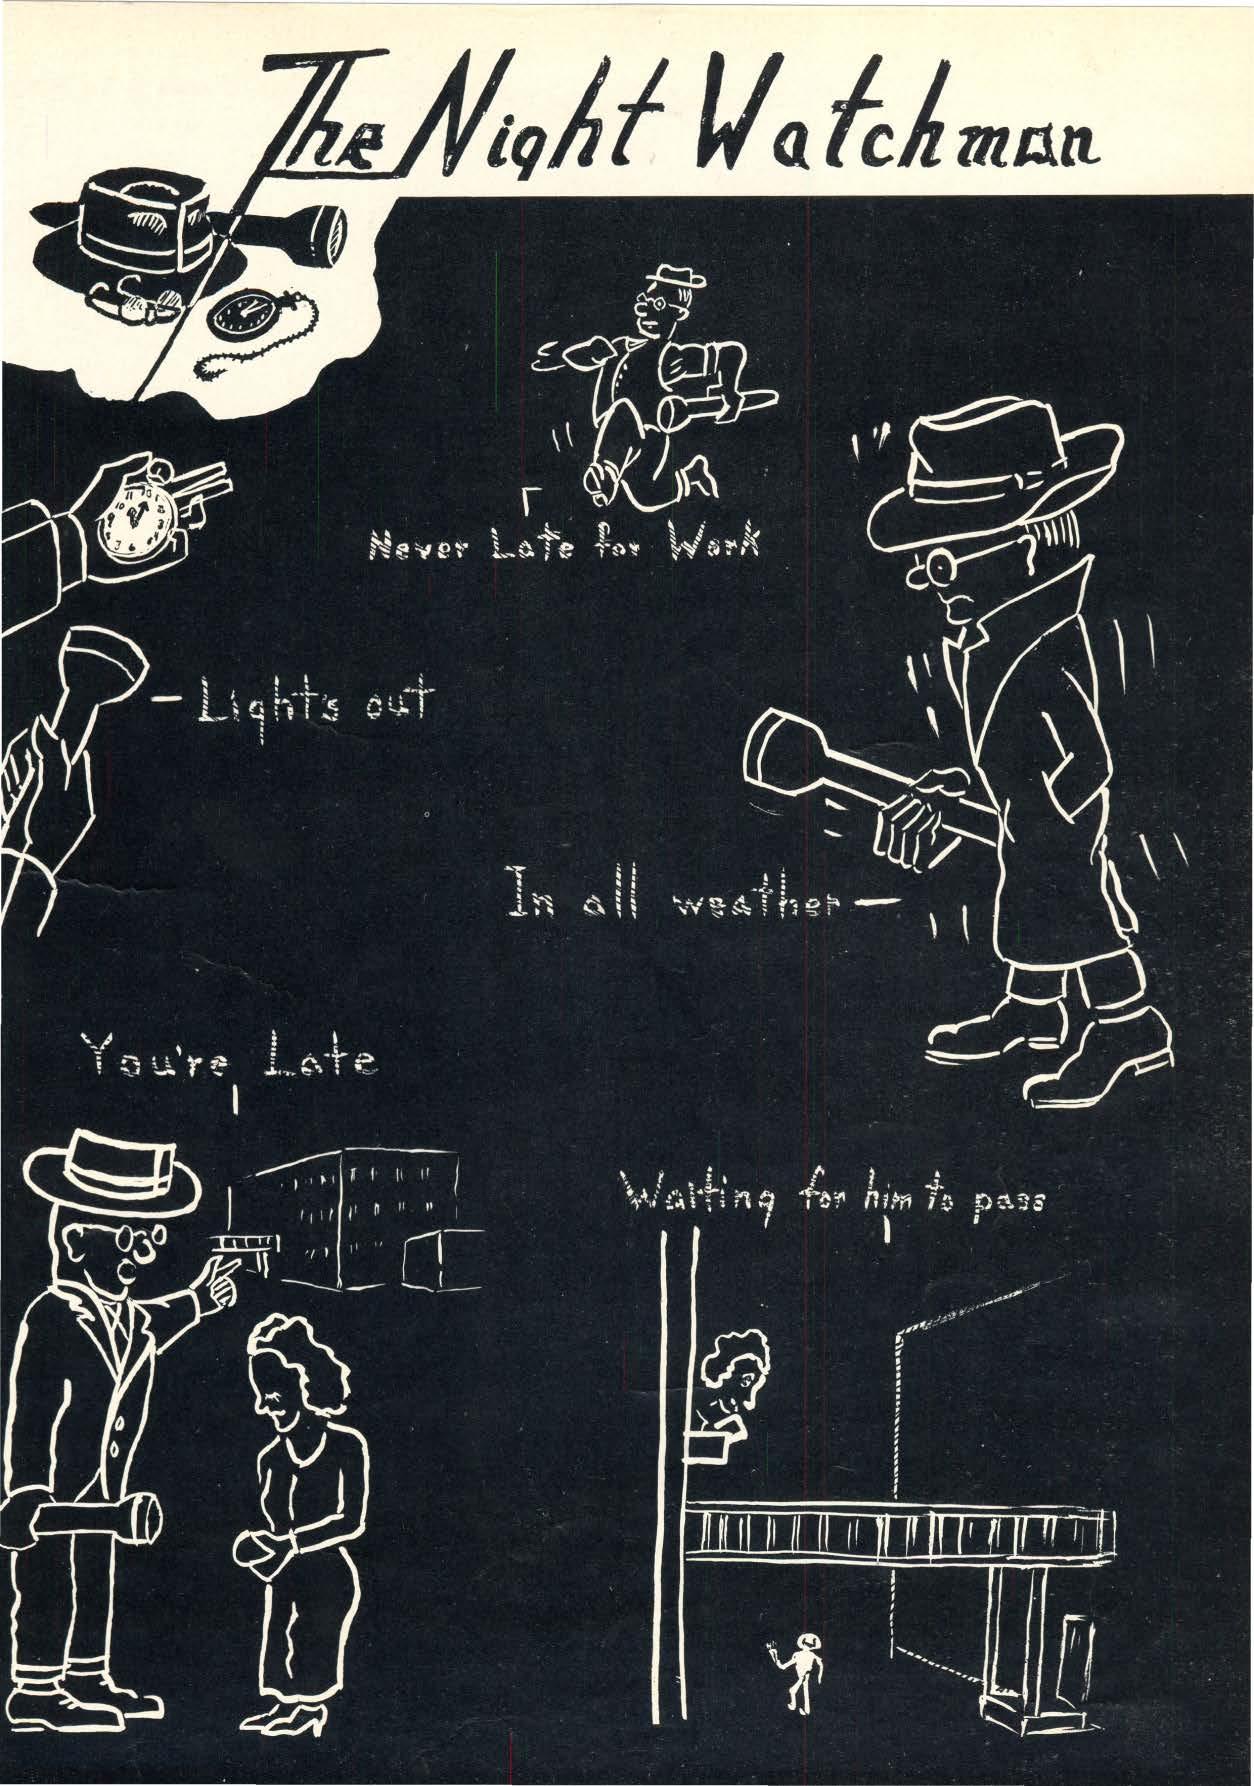 The Night Watchman
Never Late for Work
Lights out
In all weather
You're Late
Waiting for him to pass